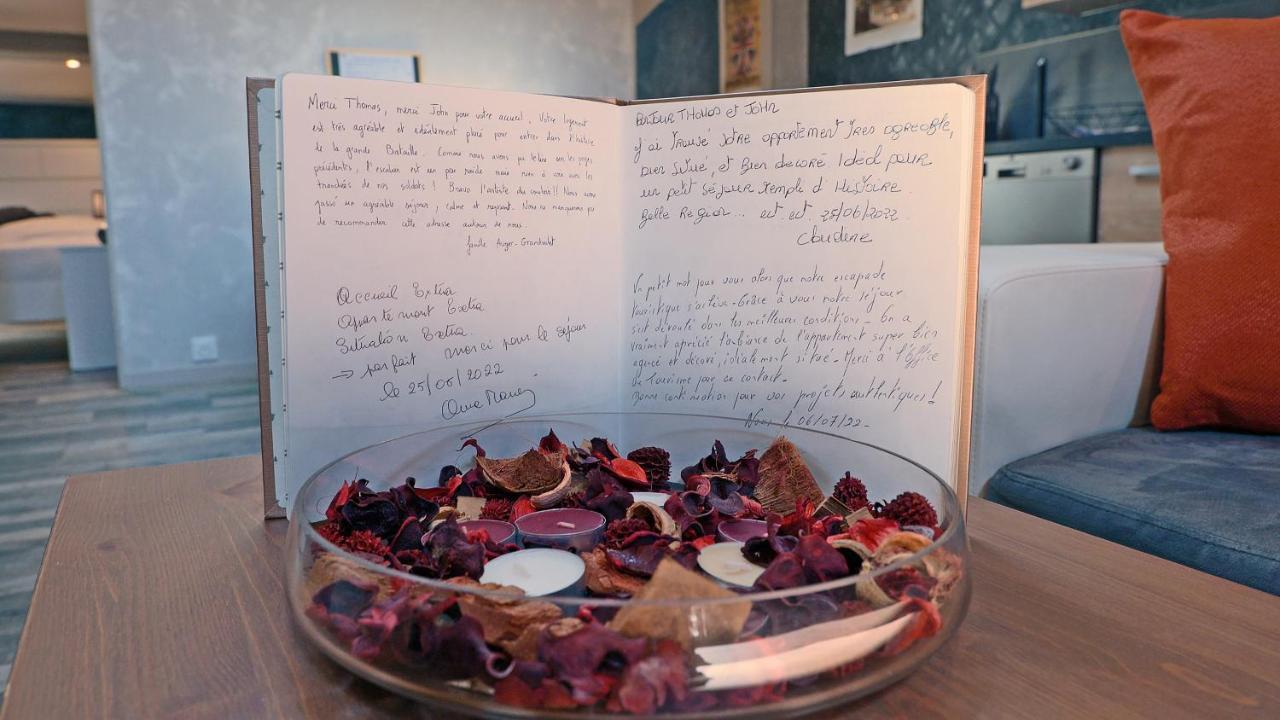 Merci Thomas, merci John pour votre accueil. Votre logement
est très agréable et idéalement placé pour entrer dans l'histoire
de la grande Bataille. Comme nous avons pu le lire sur les pages
précédentes, l'escalier est un peu raide mais rien à voir avec les
tranchées de nos soldats ! Bravo l'artiste du couloir !! Nous avons
passé un agréable séjour, calme et reposant. Nous ne manquerons pas
de recommander cette adresse autour de nous.
famille Auger-
Accueil Extra
Appartement Extra
Situation Extra
→ parfait merci pour le séjour
le 25/06/2022
BONJOUR THOMAS et JOHN
J'ai trouvé votre appartement très agréable,
bien situé, et bien decoré. Idéal pour
un petit séjour rempli d'Histoire.
Belle Region... 25/06/2022.
Claudine
Un petit mot pour vous alors que notre escapade
touristique s'achève. Grâce à vous notre séjour
s'est déroulé dans les meilleures conditions. On a
vraiment apprécié l'ambiance de l'appartement super bien
agencé et décoré, idéalement situé. Merci à l'Office
de Tourisme pour ce contact.
Bonne continuation pour vos projets authentiques !
le 06/07/22.